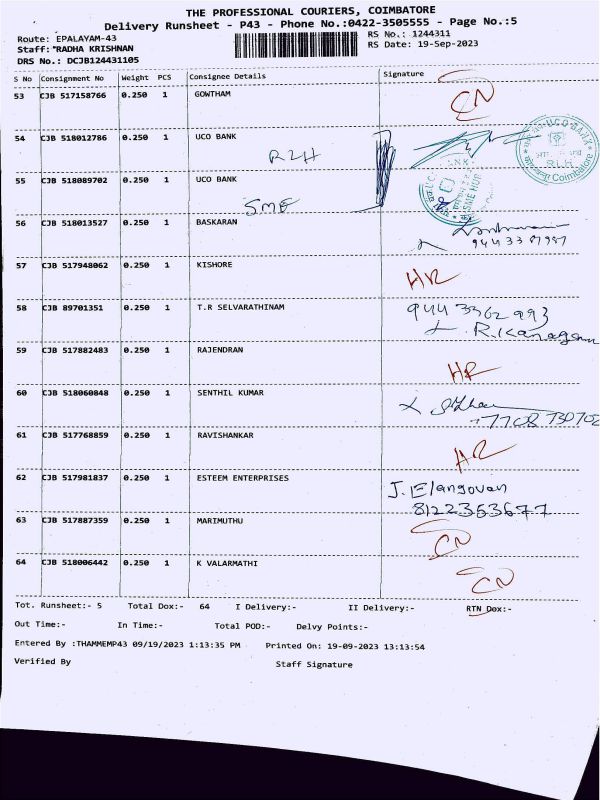 THE PROFESSIONAL COURIERS, COIMBATORE
Delivery Runsheet - P43 - Phone No.:0422-3505555 - Page No.:5
Route: EPALAYAM-43
RS No.: 1244311
Staff: *RADHA KRISHNAN
RS Date: 19-Sep-2023
DRS No.: DCJB124431105
S No Consignment No Weight PCS Consignee Details Signature
53 CJB 517158766 0.250 1 GOWTHAM CN
54 CJB 518012786 0.250 1 UCO BANK
RLH
UCO BANK
RLH
Coimbatore
55 CJB 518089702 0.250 1 UCO BANK
SME
56 CJB 518013527 0.250 1 BASKARAN
57 CJB 517948062 0.250 1 KISHORE HR
58 CJB 89701351 0.250 1 T.R SELVARATHINAM 944 3362 993
R.Kanagam
59 CJB 517882483 0.250 1 RAJENDRAN HR
60 CJB 518060848 0.250 1 SENTHIL KUMAR
61 CJB 517768859 0.250 1 RAVISHANKAR HR
62 CJB 517981837 0.250 1 ESTEEM ENTERPRISES J. Elangovan
8122353677
63 CJB 517887359 0.250 1 MARIMUTHU CN
64 CJB 518006442 0.250 1 K VALARMATHI CN
Tot. Runsheet:- 5 Total Dox:- 64 I Delivery:- II Delivery:- RTN Dox:-
Out Time:- In Time:- Total POD:- Delvy Points:-
Entered By :THAMMEMP43 09/19/2023 1:13:35 PM Printed On: 19-09-2023 13:13:54
Verified By Staff Signature